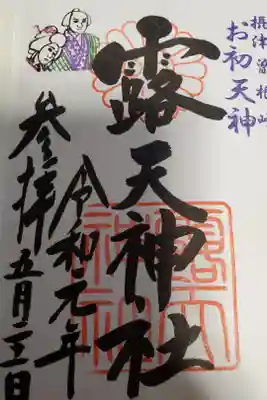 摂津 曽根崎
お初天神
露天神社
露天
神社
令和元年
参拝 五月二三日